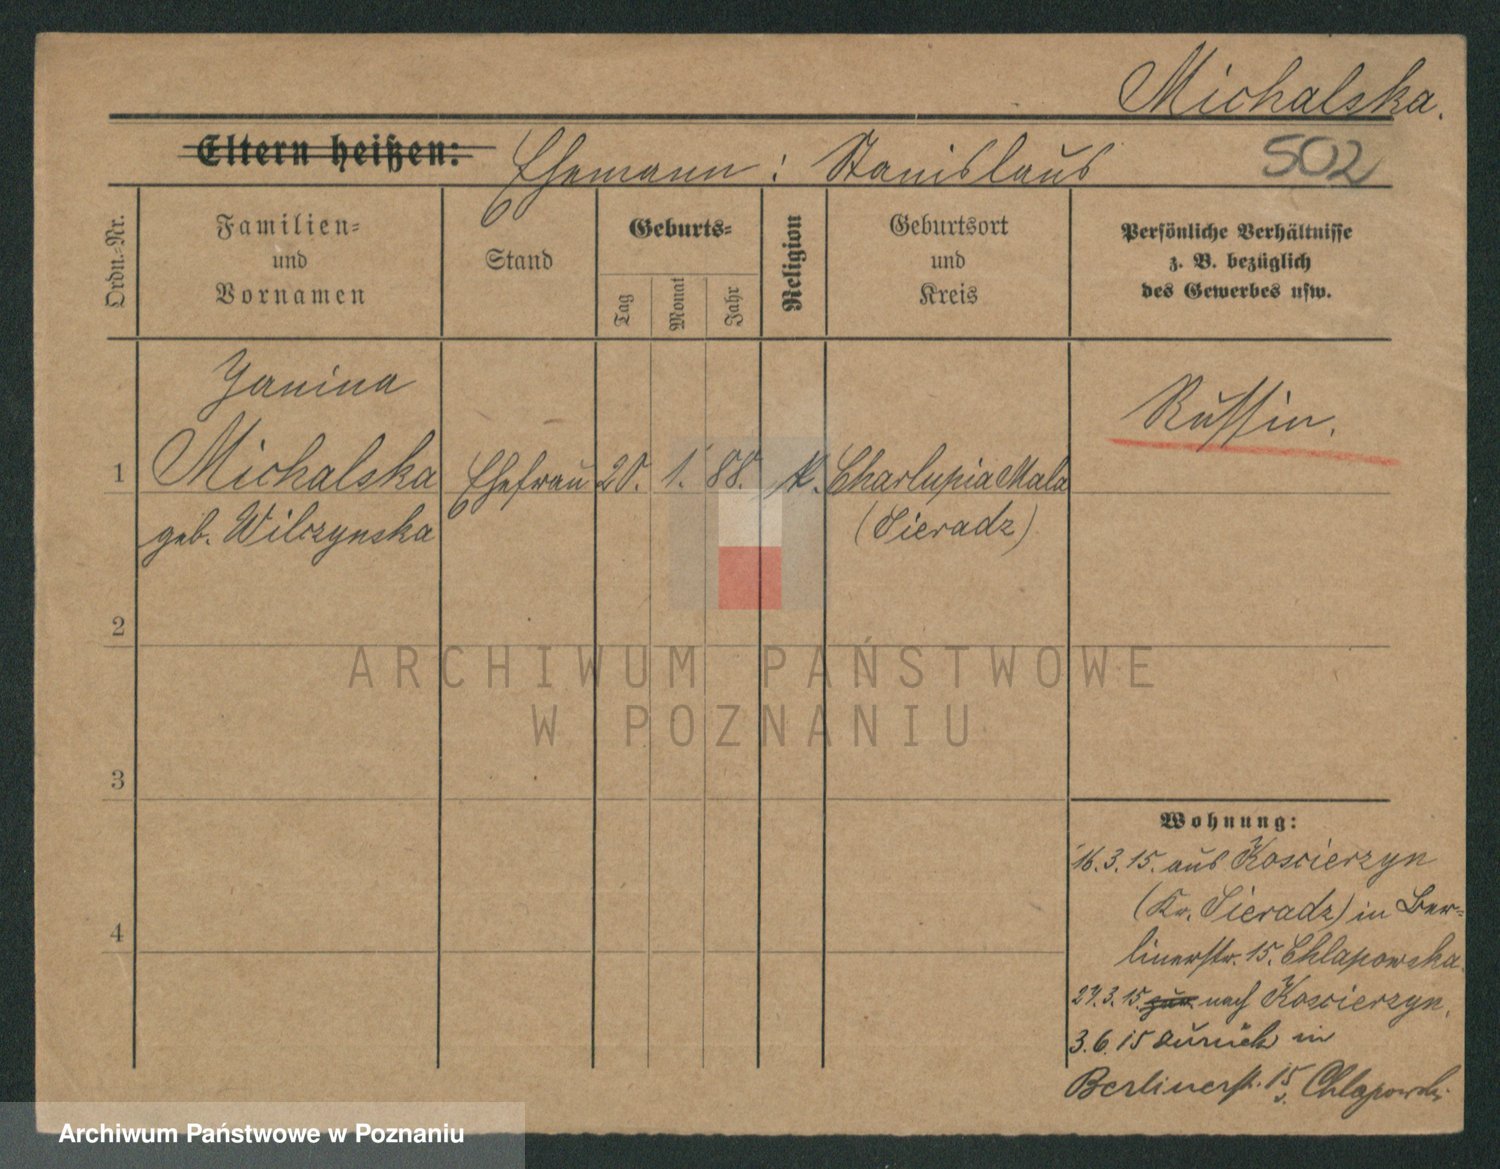 Michalska.
Eltern heißen: Ehemann : Stanislaus
502
Ordn.-Nr.
Familien-
und
Vornamen
Stand
Geburts-
Tag
Monat
Jahr
Religion
Geburtsort
und
Kreis
Persönliche Verhältnisse
z. B. bezüglich
des Gewerbes usw.
Janina
1 Michalska Ehefrau 20. 1. 88. k. Charlupia Mala
geb. Wilczynska (Sieradz)
Russin.
2
3
4
Wohnung:
16.3.15. aus Koscierzyn
(Kr. Sieradz) in Ber-
linerstr. 15. Chlapowska.
27.3.15. zur nach Koscierzyn.
3.6.15 zurück in
Berlinerstr. 15 Chlapowski
ARCHIWUM PAŃSTWOWE
W POZNANIU
Archiwum Państwowe w Poznaniu